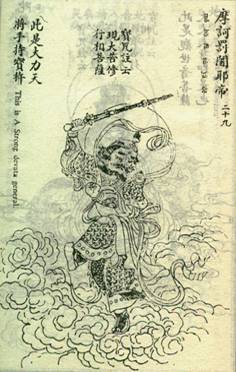 摩訶罰闍耶帝 二十九
現大菩修
行相菩薩
此是大力天
將手持寶杵
This is A Strong devata general.